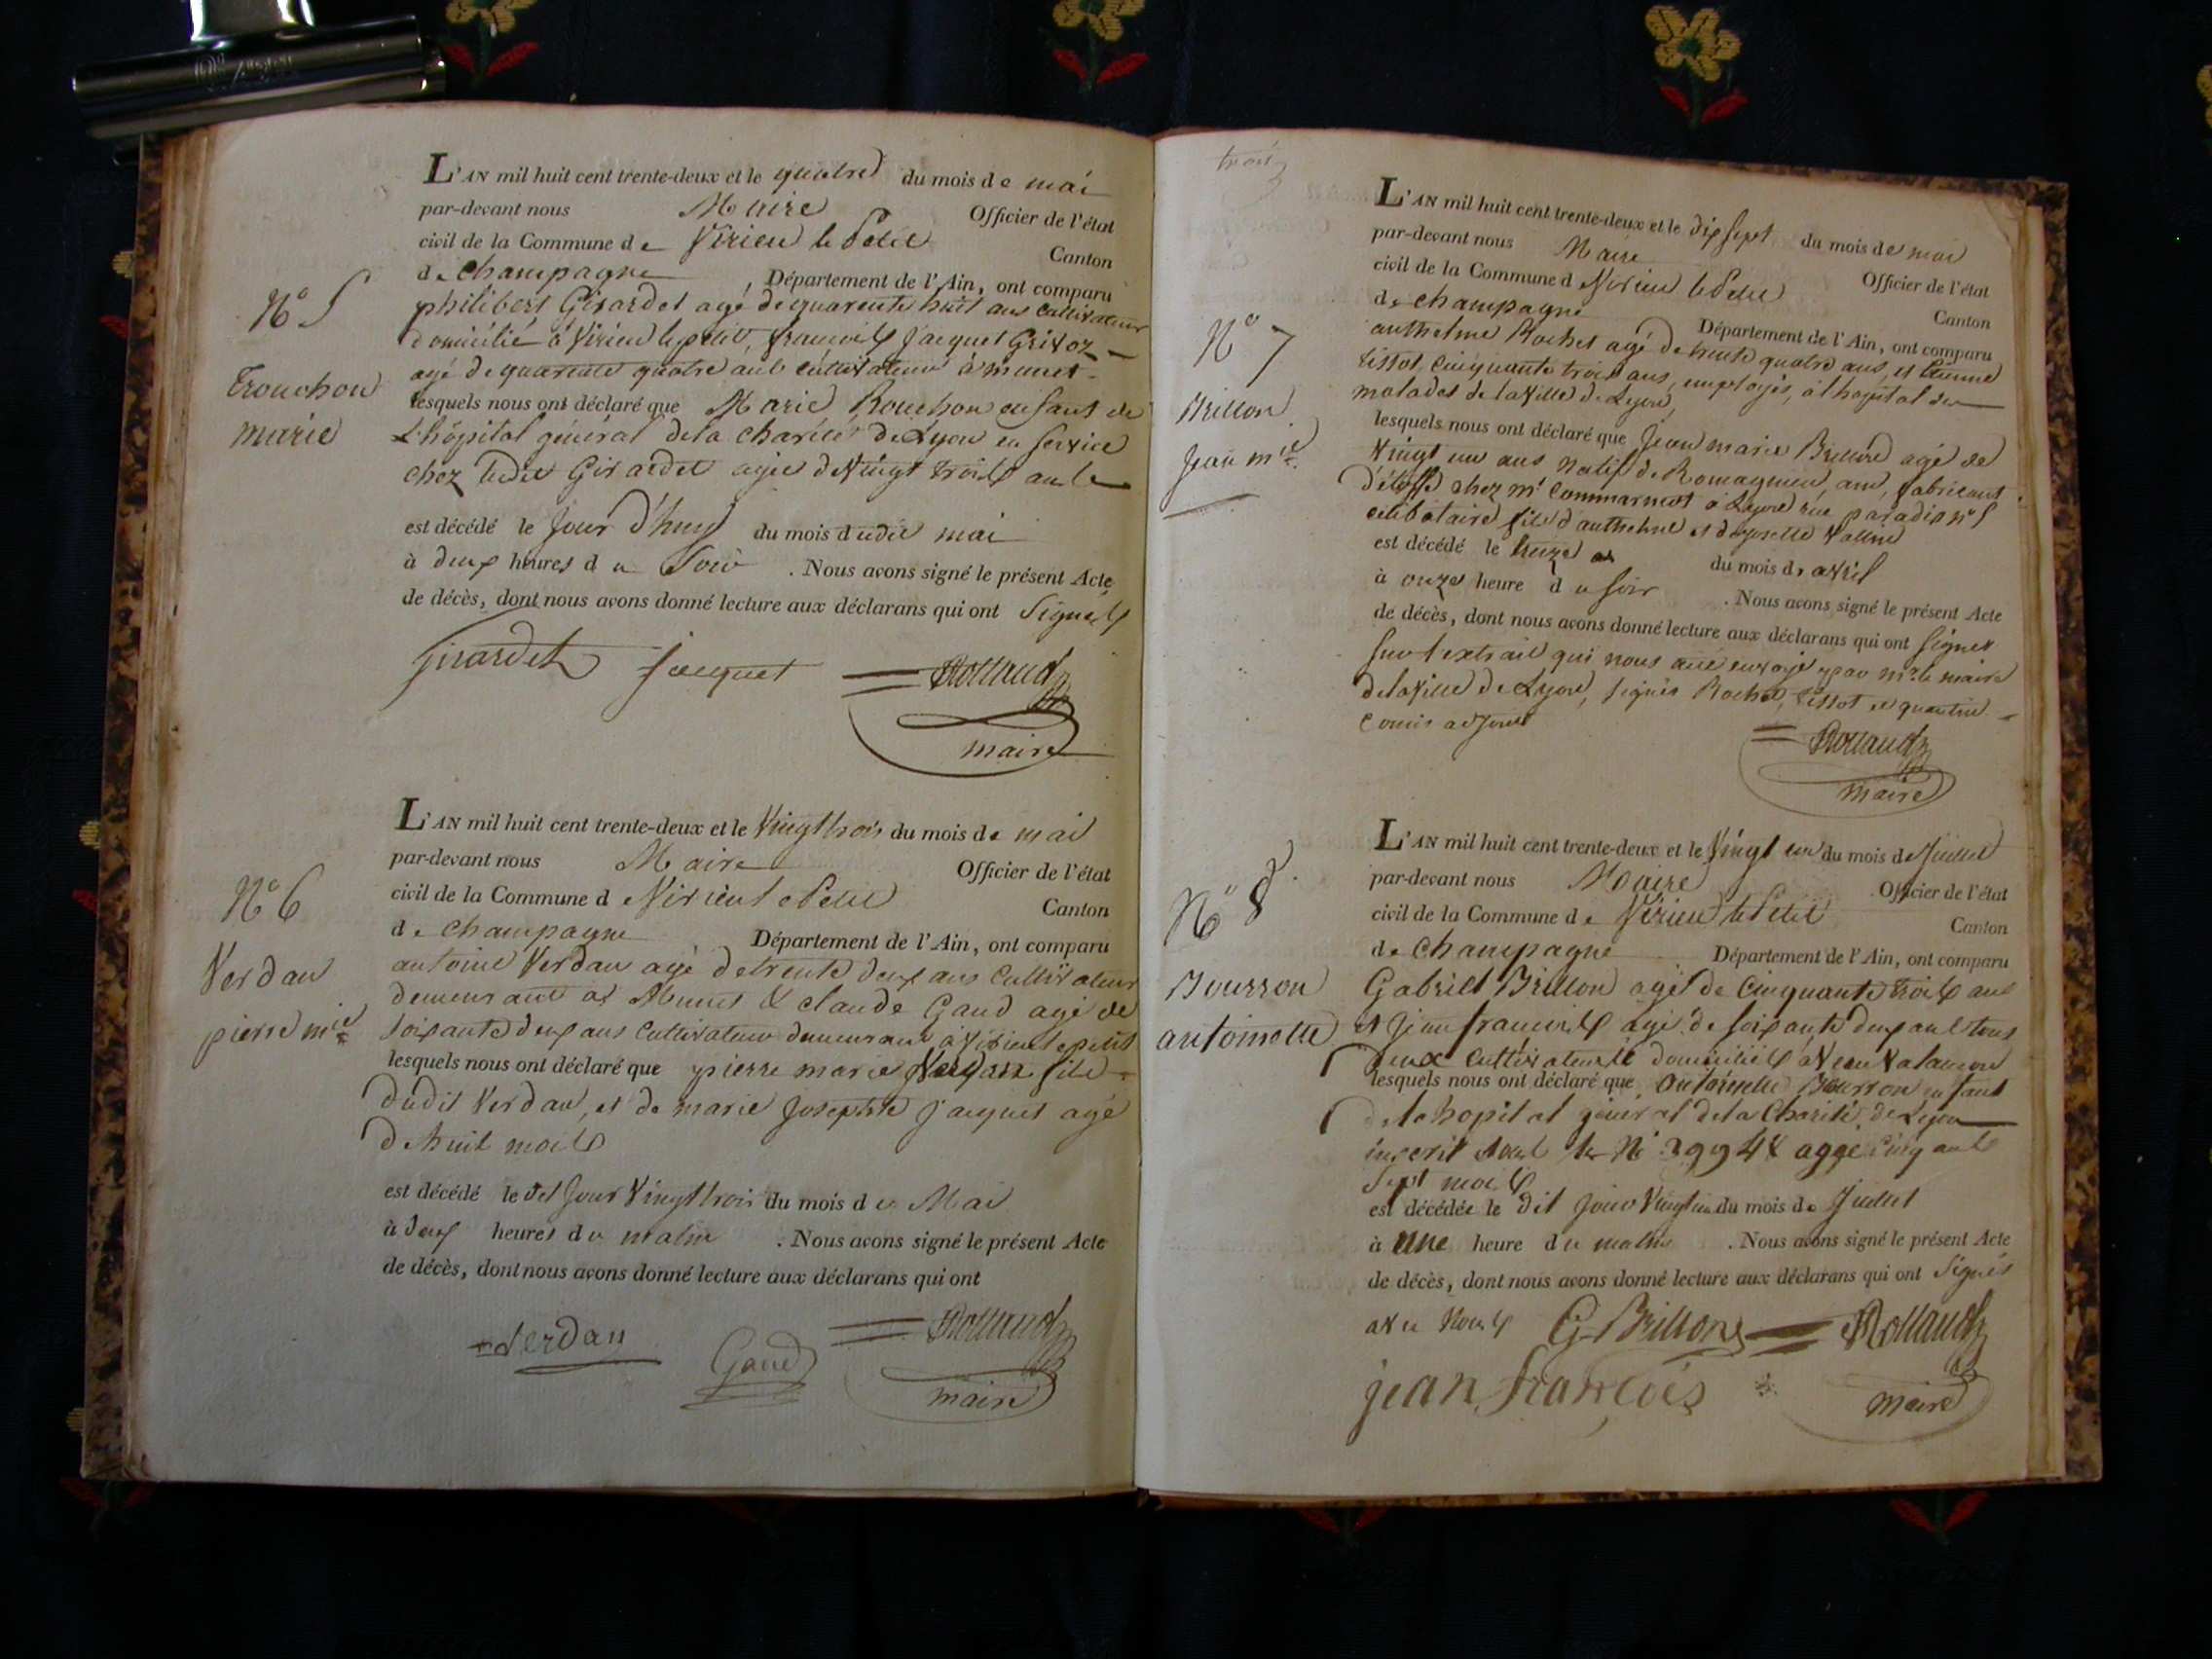 L'AN mil huit cent trente-deux et le quatre du mois de mai
par-devant nous Maire Officier de l'état
civil de la Commune de Virieu le Petit Canton
de Champagne, Département de l'Ain, ont comparu
philibert Girardet agé de quarente huit ans Cultivateur
domicilié à Virieu le petit, francois Jacquet Grivoz
agé de quarente quatre ans cultivateur à munet
lesquels nous ont déclaré que Marie Rouchon enfant de
L'hôpital général de la charité de Lyon en service
chez ledit Girardet agée de Vingt trois ans
est décédé le Jour d'huy du mois dudit mai
à deux heures du Soir. Nous avons signé le présent Acte
de décès, dont nous avons donné lecture aux déclarans qui ont Signés
Girardet Jacquet Rolland
maire
N° 5
Trouchon
marie
L'AN mil huit cent trente-deux et le Vingt trois du mois de mai
par-devant nous Maire Officier de l'état
civil de la Commune de Virieu le Petit Canton
de Champagne Département de l'Ain, ont comparu
antoine Verdan agé de trente deux ans Cultivateur
demeurant a Munet & claude Gaud agé de
soixante deux ans Cultivateur demeurant à Virieu le petit
lesquels nous ont déclaré que pierre marie Verdan fils
dudit Verdan, et de marie Josephte Jacquet agé
de huit mois
est décédé le dit Jour Vingt trois du mois de Mai
à deux heures du matin. Nous avons signé le présent Acte
de décès, dont nous avons donné lecture aux déclarans qui ont
Verdan Gaud Rolland
maire
N° 6
Verdan
pierre mie
trois
L'AN mil huit cent trente-deux et le dix sept du mois de mai
par-devant nous Maire Officier de l'état
civil de la Commune de Virieu le Petit Canton
de champagne Département de l'Ain, ont comparu
anthelme Rochet agé de trente quatre ans, et Etienne
tissot, cinquante trois ans, employés, à l'hopital des
malades de la Ville de Lyon,
lesquels nous ont déclaré que Jean marie Brillon agé de
Vingt un ans natif de Romagnieu, ain, fabricant
d'étoffe chez mr Commarmot à Lyon rue paradis n° 5
célibataire fils d'anthelme et de josette Vallin
est décédé le treize du mois de avril
à onze heure du soir. Nous avons signé le présent Acte
de décès, dont nous avons donné lecture aux déclarans qui ont signer
sur l'extrait qui nous a été envoyé par mr le maire
de la Ville de Lyon, signés Rochet, tissot et quantin
comis adjoint
Rolland
maire
N° 7
Brillon
Jean mie
L'AN mil huit cent trente-deux et le Vingt un du mois de Juillet
par-devant nous Maire Officier de l'état
civil de la Commune de Virieu le Petit Canton
de Champagne Département de l'Ain, ont comparu
Gabriel Brillon agé de Cinquante trois ans
et Jean francois agé de soixante deux ans tous
deux Cultivateurs domiciliés à
lesquels nous ont déclaré que antoinette Bourron enfant
de l'hopital général de la Charité de Lyon
inscrit sous le N° 39948 agge cinq ans
sept mois
est décédée le dit jour Vingt un du mois de Juillet
à une heure du matin. Nous avons signé le présent Acte
de décès, dont nous avons donné lecture aux déclarans qui ont Signés
avec Nous G Brillon Rolland
jean francois maire
N° 8
Bourron
antoinette